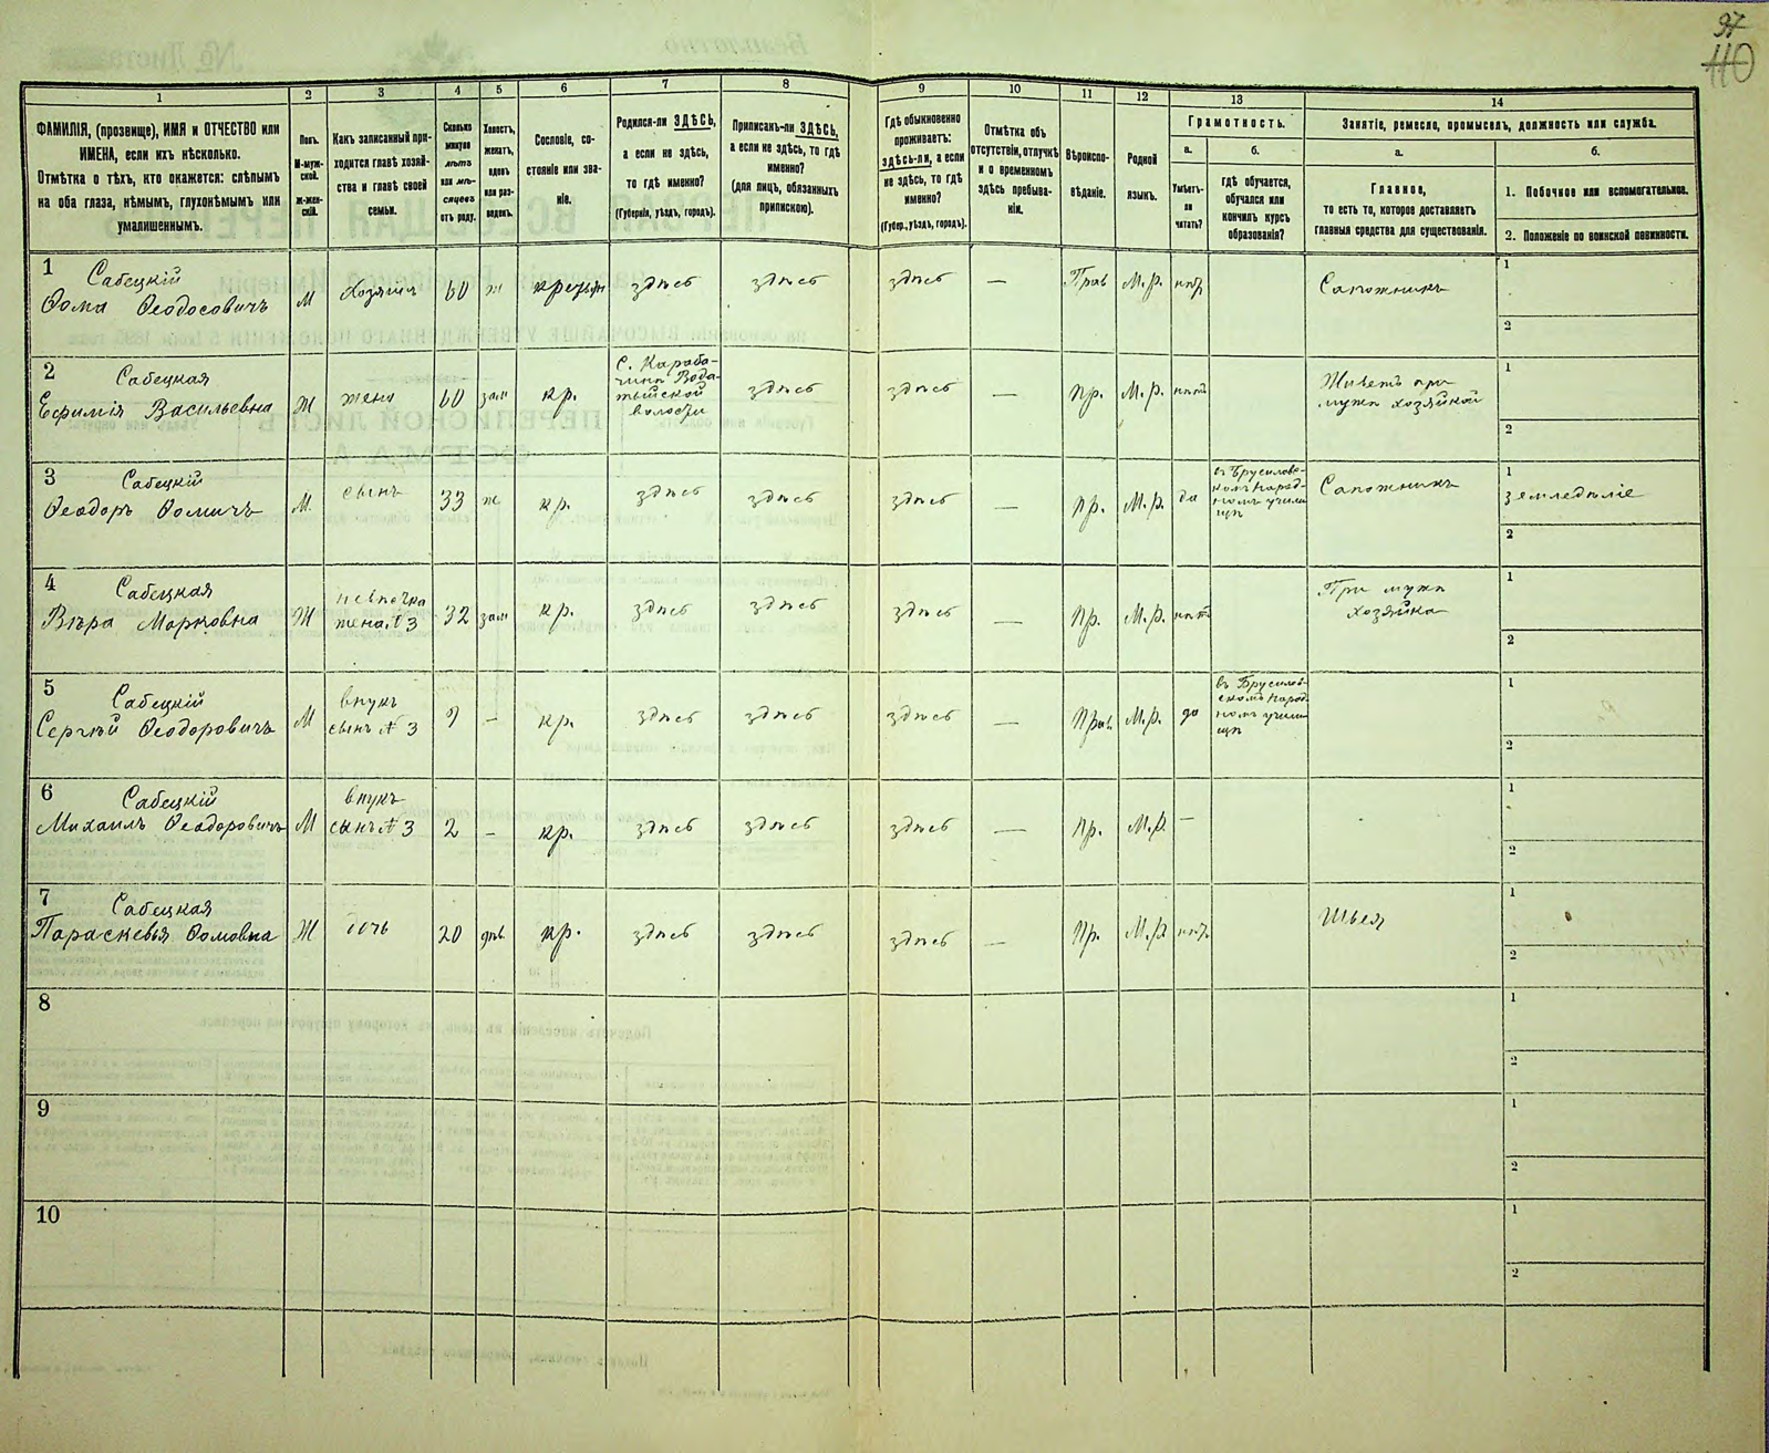 37
110
1
2
3
4
5
6
7
8
9
10
11
12
13
14
ФАМИЛІЯ, (прозвище), ИМЯ и ОТЧЕСТВО или
ИМЕНА, если ихъ нѣсколько.
Отмѣтка о тѣхъ, кто окажется: слѣпымъ
на оба глаза, нѣмымъ, глухонѣмымъ или
умалишеннымъ.
Полъ.
М-муж-
ской.
Ж-жен-
скій.
Какъ записанный при-
ходится главѣ хозяй-
ства и главѣ своей
семьи.
Сколько
минуло
лѣтъ
или мѣ-
сяцевъ
отъ роду.
Холостъ,
женатъ,
вдовъ
или раз-
веденъ.
Сословіе, со-
стояніе или зва-
ніе.
Родился-ли ЗДѢСЬ,
а если не здѣсь,
то гдѣ именно?
(Губернія, уѣздъ, городъ).
Приписанъ-ли ЗДѢСЬ,
а если не здѣсь, то гдѣ
именно?
(для лицъ, обязанныхъ
припискою).
Гдѣ обыкновенно
проживаетъ:
здѣсь-ли, а если
не здѣсь, то гдѣ
именно?
(Губер., уѣздъ, городъ).
Отмѣтка объ
отсутствіи, отлучкѣ
и о временномъ
здѣсь пребыва-
ніи.
Вѣроиспо-
вѣданіе.
Родной
языкъ.
Грамотность.
а.
Умѣетъ-
ли
читать?
б.
гдѣ обучается,
обучался или
кончилъ курсъ
образованія?
Занятіе, ремесло, промыселъ, должность или служба.
а.
Главное,
то есть то, которое доставляетъ
главныя средства для существованія.
б.
1. Побочное или вспомогательное.
2. Положеніе по воинской повинности.
1 Сабецкій
Ѳома Ѳеодосовичъ
М
Хозяинъ
60
ж
крестьян
здѣсь
здѣсь
здѣсь
—
Прав
М.р.
нѣтъ
Сапожникъ
1
2
2 Сабецкая
Ефимія Васильевна
Ж
жена
60
зам
кр.
С. Караба-
чинъ Вода-
тыйской
волости
здѣсь
здѣсь
—
Пр.
М.р.
нѣтъ
Живетъ при
мужѣ хозяйкой
1
2
3 Сабецкій
Ѳеодоръ Ѳомичъ
М.
сынъ
33
ж
кр.
здѣсь
здѣсь
здѣсь
—
Пр.
М.р.
да
въ Брусилов-
комъ народ-
номъ учили
щѣ
Сапожникъ
1
земледѣліе
2
4 Сабецкая
Вѣра Марковна
Ж
невѣстка
жена № 3
32
зам
кр.
здѣсь
здѣсь
здѣсь
—
Пр.
М.р.
нѣтъ
При мужѣ
хозяйка
1
2
5 Сабецкій
Сергѣй Ѳеодоровичъ
М
внукъ
сынъ № 3
9
—
кр.
здѣсь
здѣсь
здѣсь
—
Прав.
М.р.
да
въ Брусилов-
скомъ народ-
номъ учили
щѣ
1
2
6 Сабецкій
Михаилъ Ѳеодоровичъ
М
внукъ
сынъ № 3
2
—
кр.
здѣсь
здѣсь
здѣсь
—
Пр.
М.р.
—
1
2
7 Сабецкая
Параскевья Ѳомовна
Ж
дочь
20
дѣв
кр.
здѣсь
здѣсь
здѣсь
—
Пр.
М.р.
нѣтъ
Швея
1
2
8
1
2
9
1
2
10
1
2